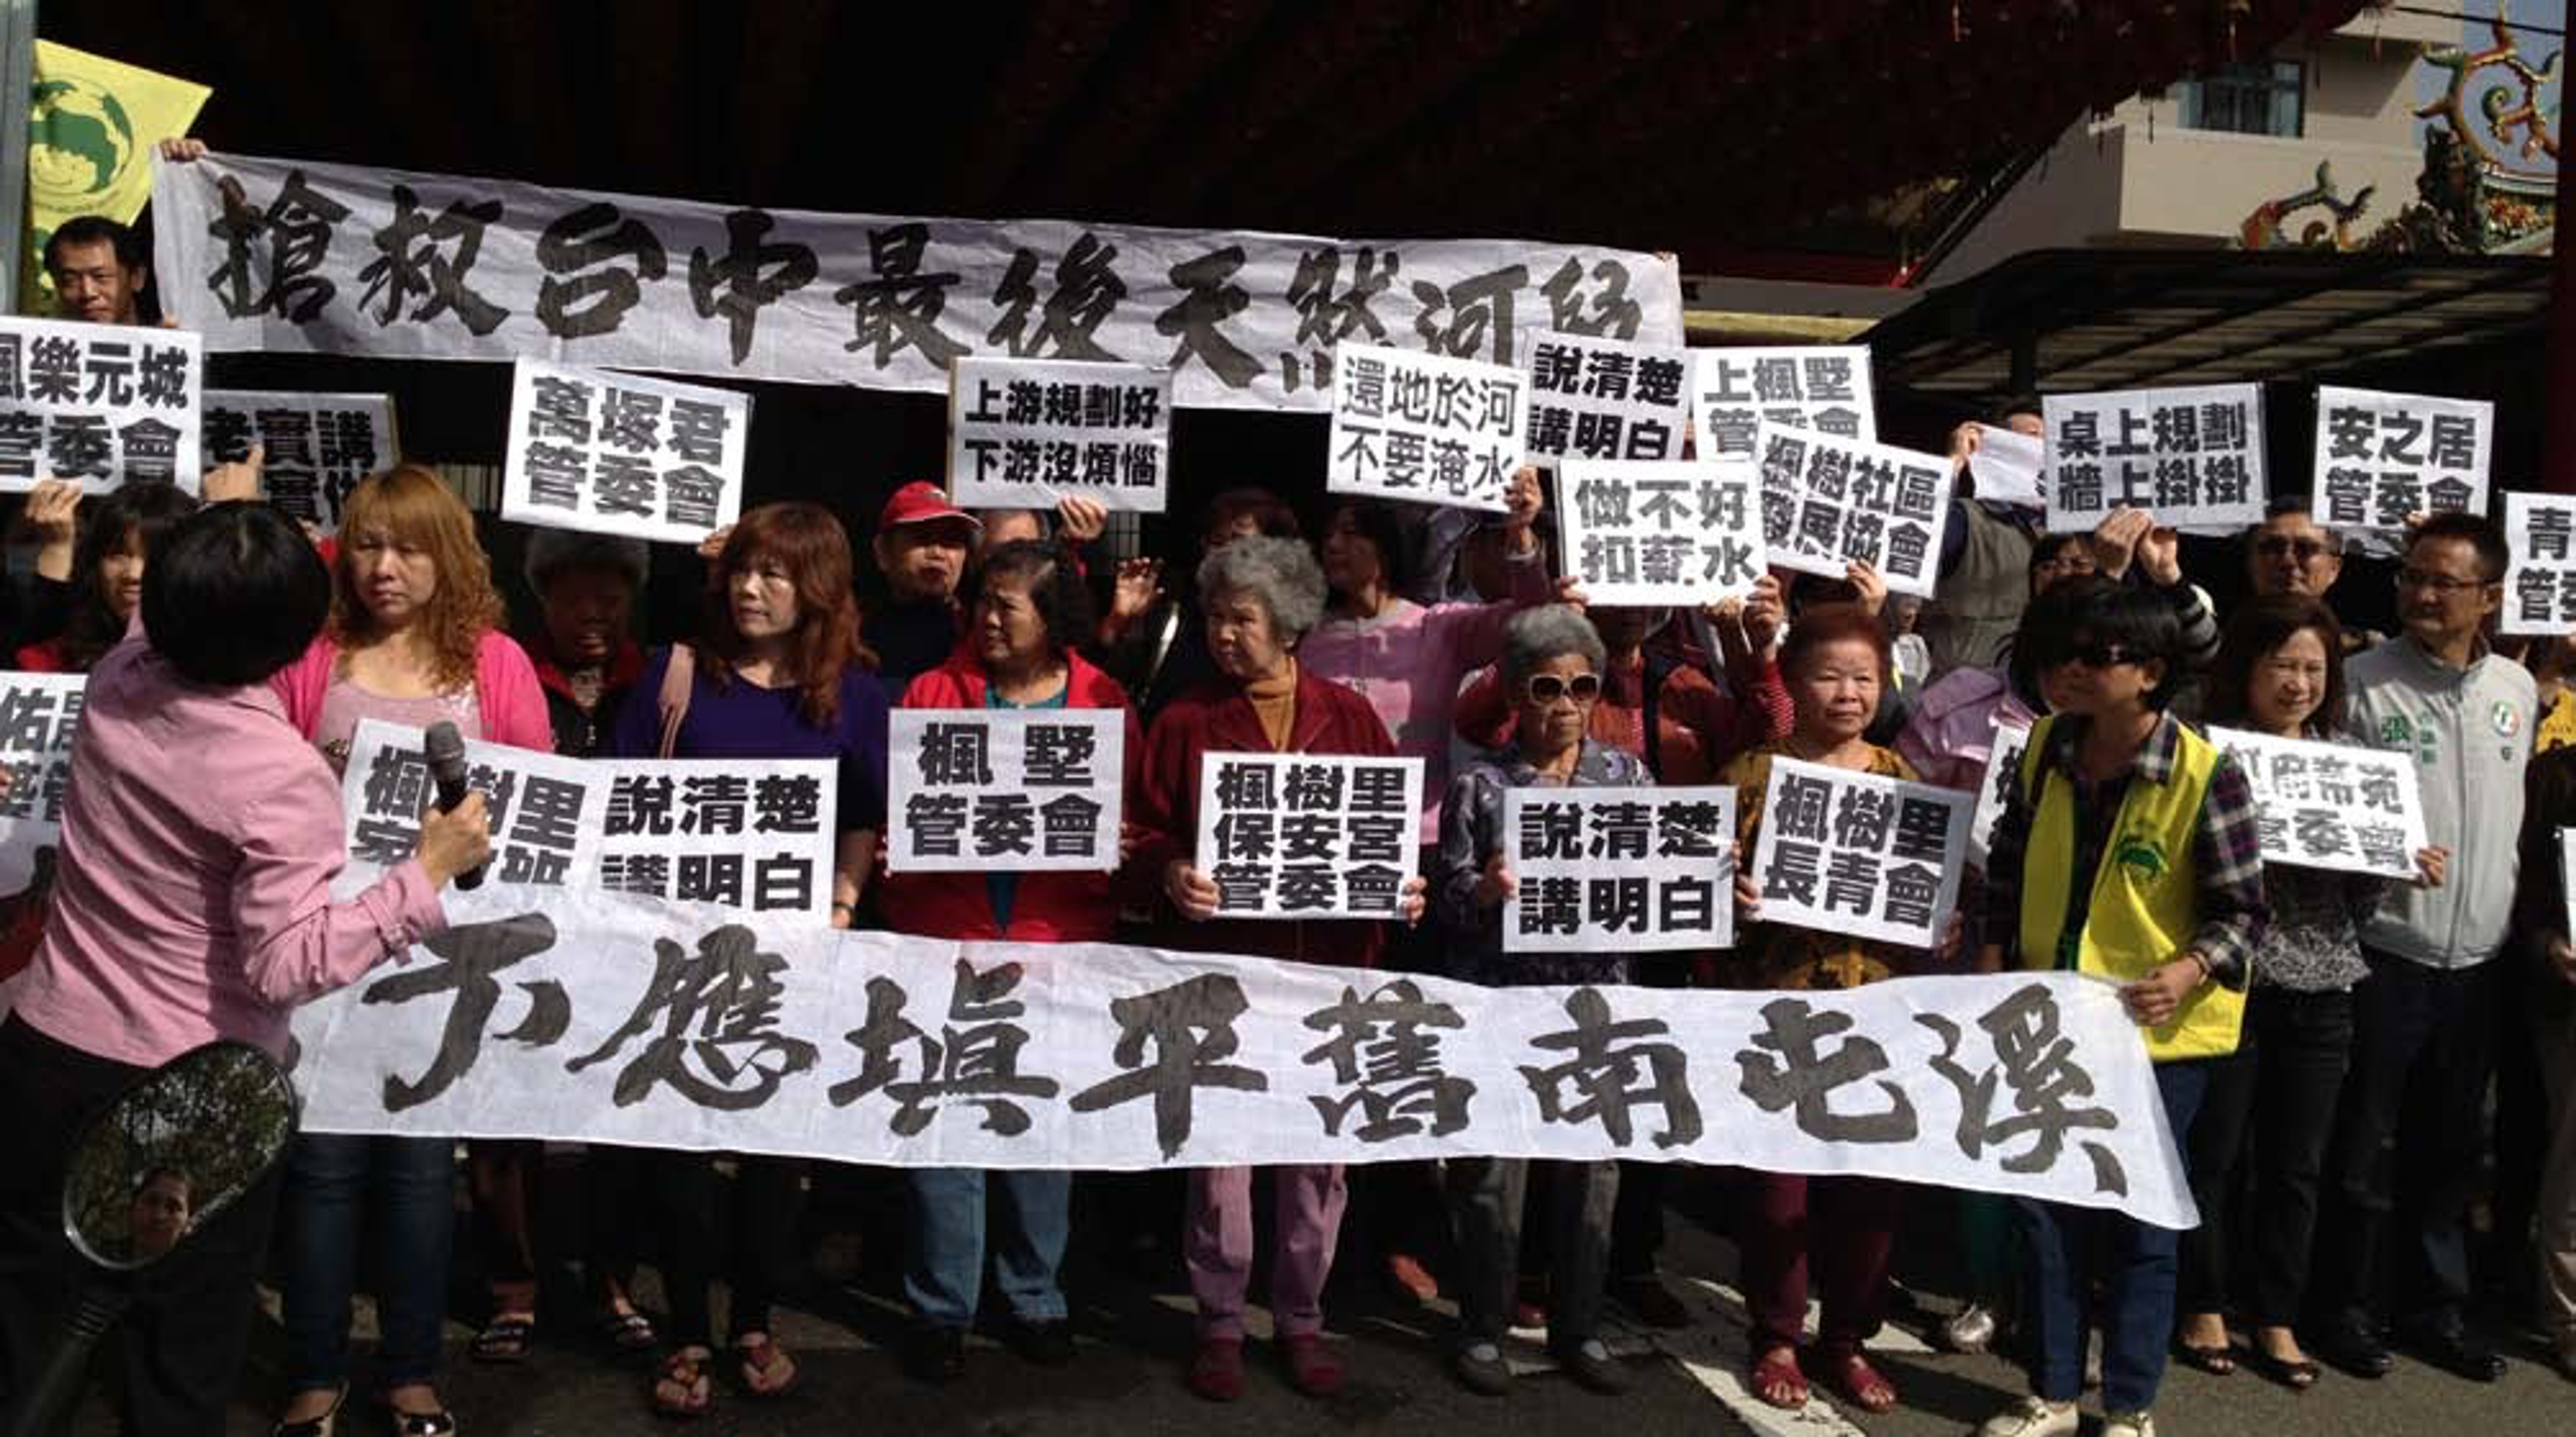 搶救台中最後天然河
風樂元城
管委會
老實講
萬塚君
管委會
上游規劃好
下游沒煩惱
還地於河
不要淹水
說清楚
講明白
上楓墅
管委會
楓樹社區
發展協會
做不好
扣薪水
桌上規劃
牆上掛掛
安之居
管委會
青
管委
佑
楓樹里
說清楚
講明白
楓墅
管委會
楓樹里
保安宮
管委會
說清楚
講明白
楓樹里
長青會
管委會
張
不應填平舊南屯溪